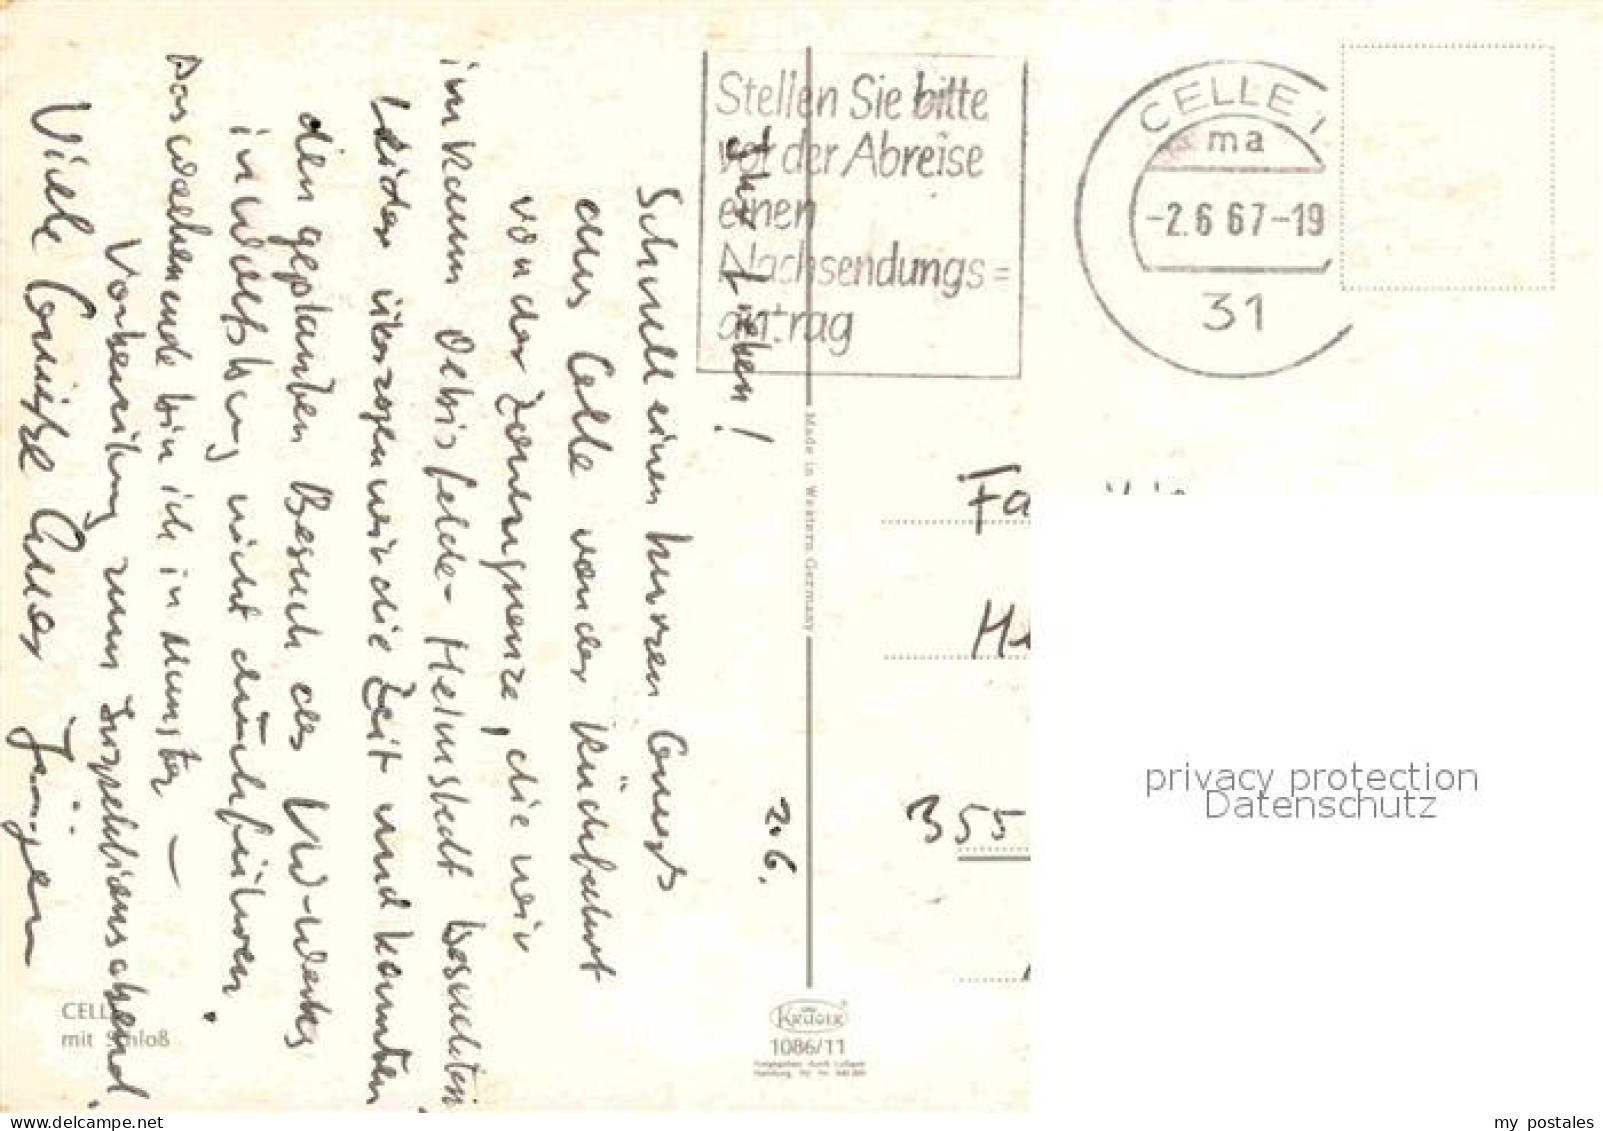 Stellen Sie bitte
vor der Abreise
einen
Nachsendungs=
antrag
CELLE 1
ma
-2.6.67-19
31
2.6.
Ihr Lieben!
Schnell einen kurzen Gruß
aus Celle von der Rückfahrt
von der Zonengrenze, die wir
im Raum Oebisfelde-Helmstedt besuchten.
Leider überzogen wir die Zeit und konnten
den geplanten Besuch des VW-Werkes
in Wolfsburg nicht durchführen.
Das Wochenende bin ich in Munster –
Vorbereitung zum Inspektionsabend.
Viele Grüße Euer Jürgen
CELLE
mit Schloß
Made in Western Germany
KRÜGER
1086/11
Fa
H
35
privacy protection
Datenschutz
my postales
www.delcampe.net